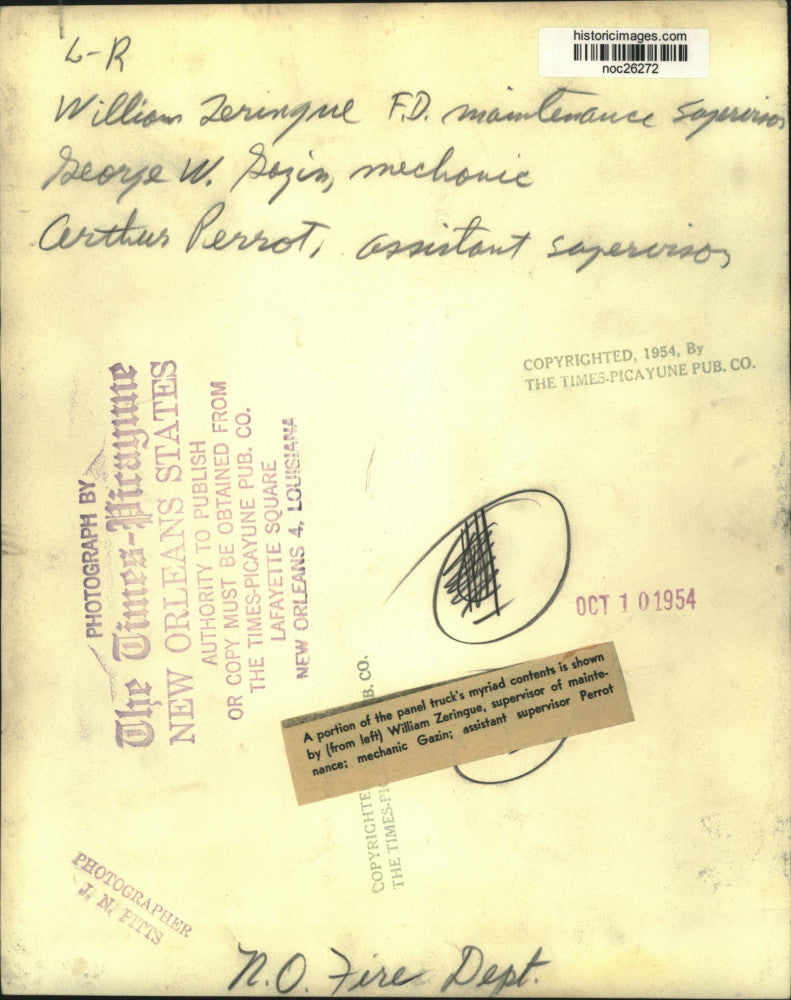 historicimages.com
noc26272
L-R
William Zeringue F.D. maintenance supervisor
George W. Gazin, mechanic
Arthur Perrot, assistant supervisor
COPYRIGHTED, 1954, By
THE TIMES-PICAYUNE PUB. CO.
PHOTOGRAPH BY
The Times-Picayune
NEW ORLEANS STATES
AUTHORITY TO PUBLISH
OR COPY MUST BE OBTAINED FROM
THE TIMES-PICAYUNE PUB. CO.
LAFAYETTE SQUARE
NEW ORLEANS 4, LOUISIANA
OCT 10 1954
A portion of the panel truck's myriad contents is shown
by (from left) William Zeringue, supervisor of mainte-
nance; mechanic Gazin; assistant supervisor Perrot
COPYRIGHTE B. CO.
THE TIMES-PI
PHOTOGRAPHER
J. N. PITTS
N.O. Fire Dept.